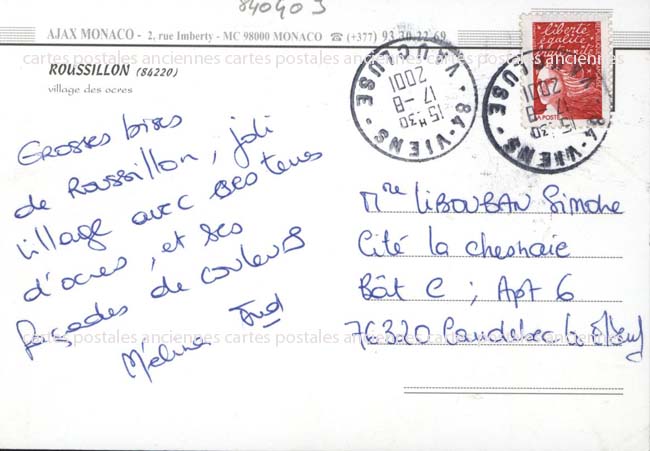 840403
AJAX MONACO - 2, rue Imberty - MC 98000 MONACO ☎ (+377) 93.30.22.69
cartes postales anciennes cartes postales anciennes cartes postales anciennes
ROUSSILLON (84220)
village des ocres
84-VIENS - VAUCLUSE
15H30
17-8
2001
84-VIENS
15H30
17-8
2001
liberté
égalité
fraternité
LA POSTE
Grosses bises
de Roussillon, joli
village avec ses terres
d'ocres, et ses
façades de couleurs
Mélina
Mme LIBOUBAN Simone
Cité la chesnaie
Bât C ; Apt 6
76320 Caudebec les Elbeuf
cartes postales anciennes cartes postales anciennes cartes postales anciennes